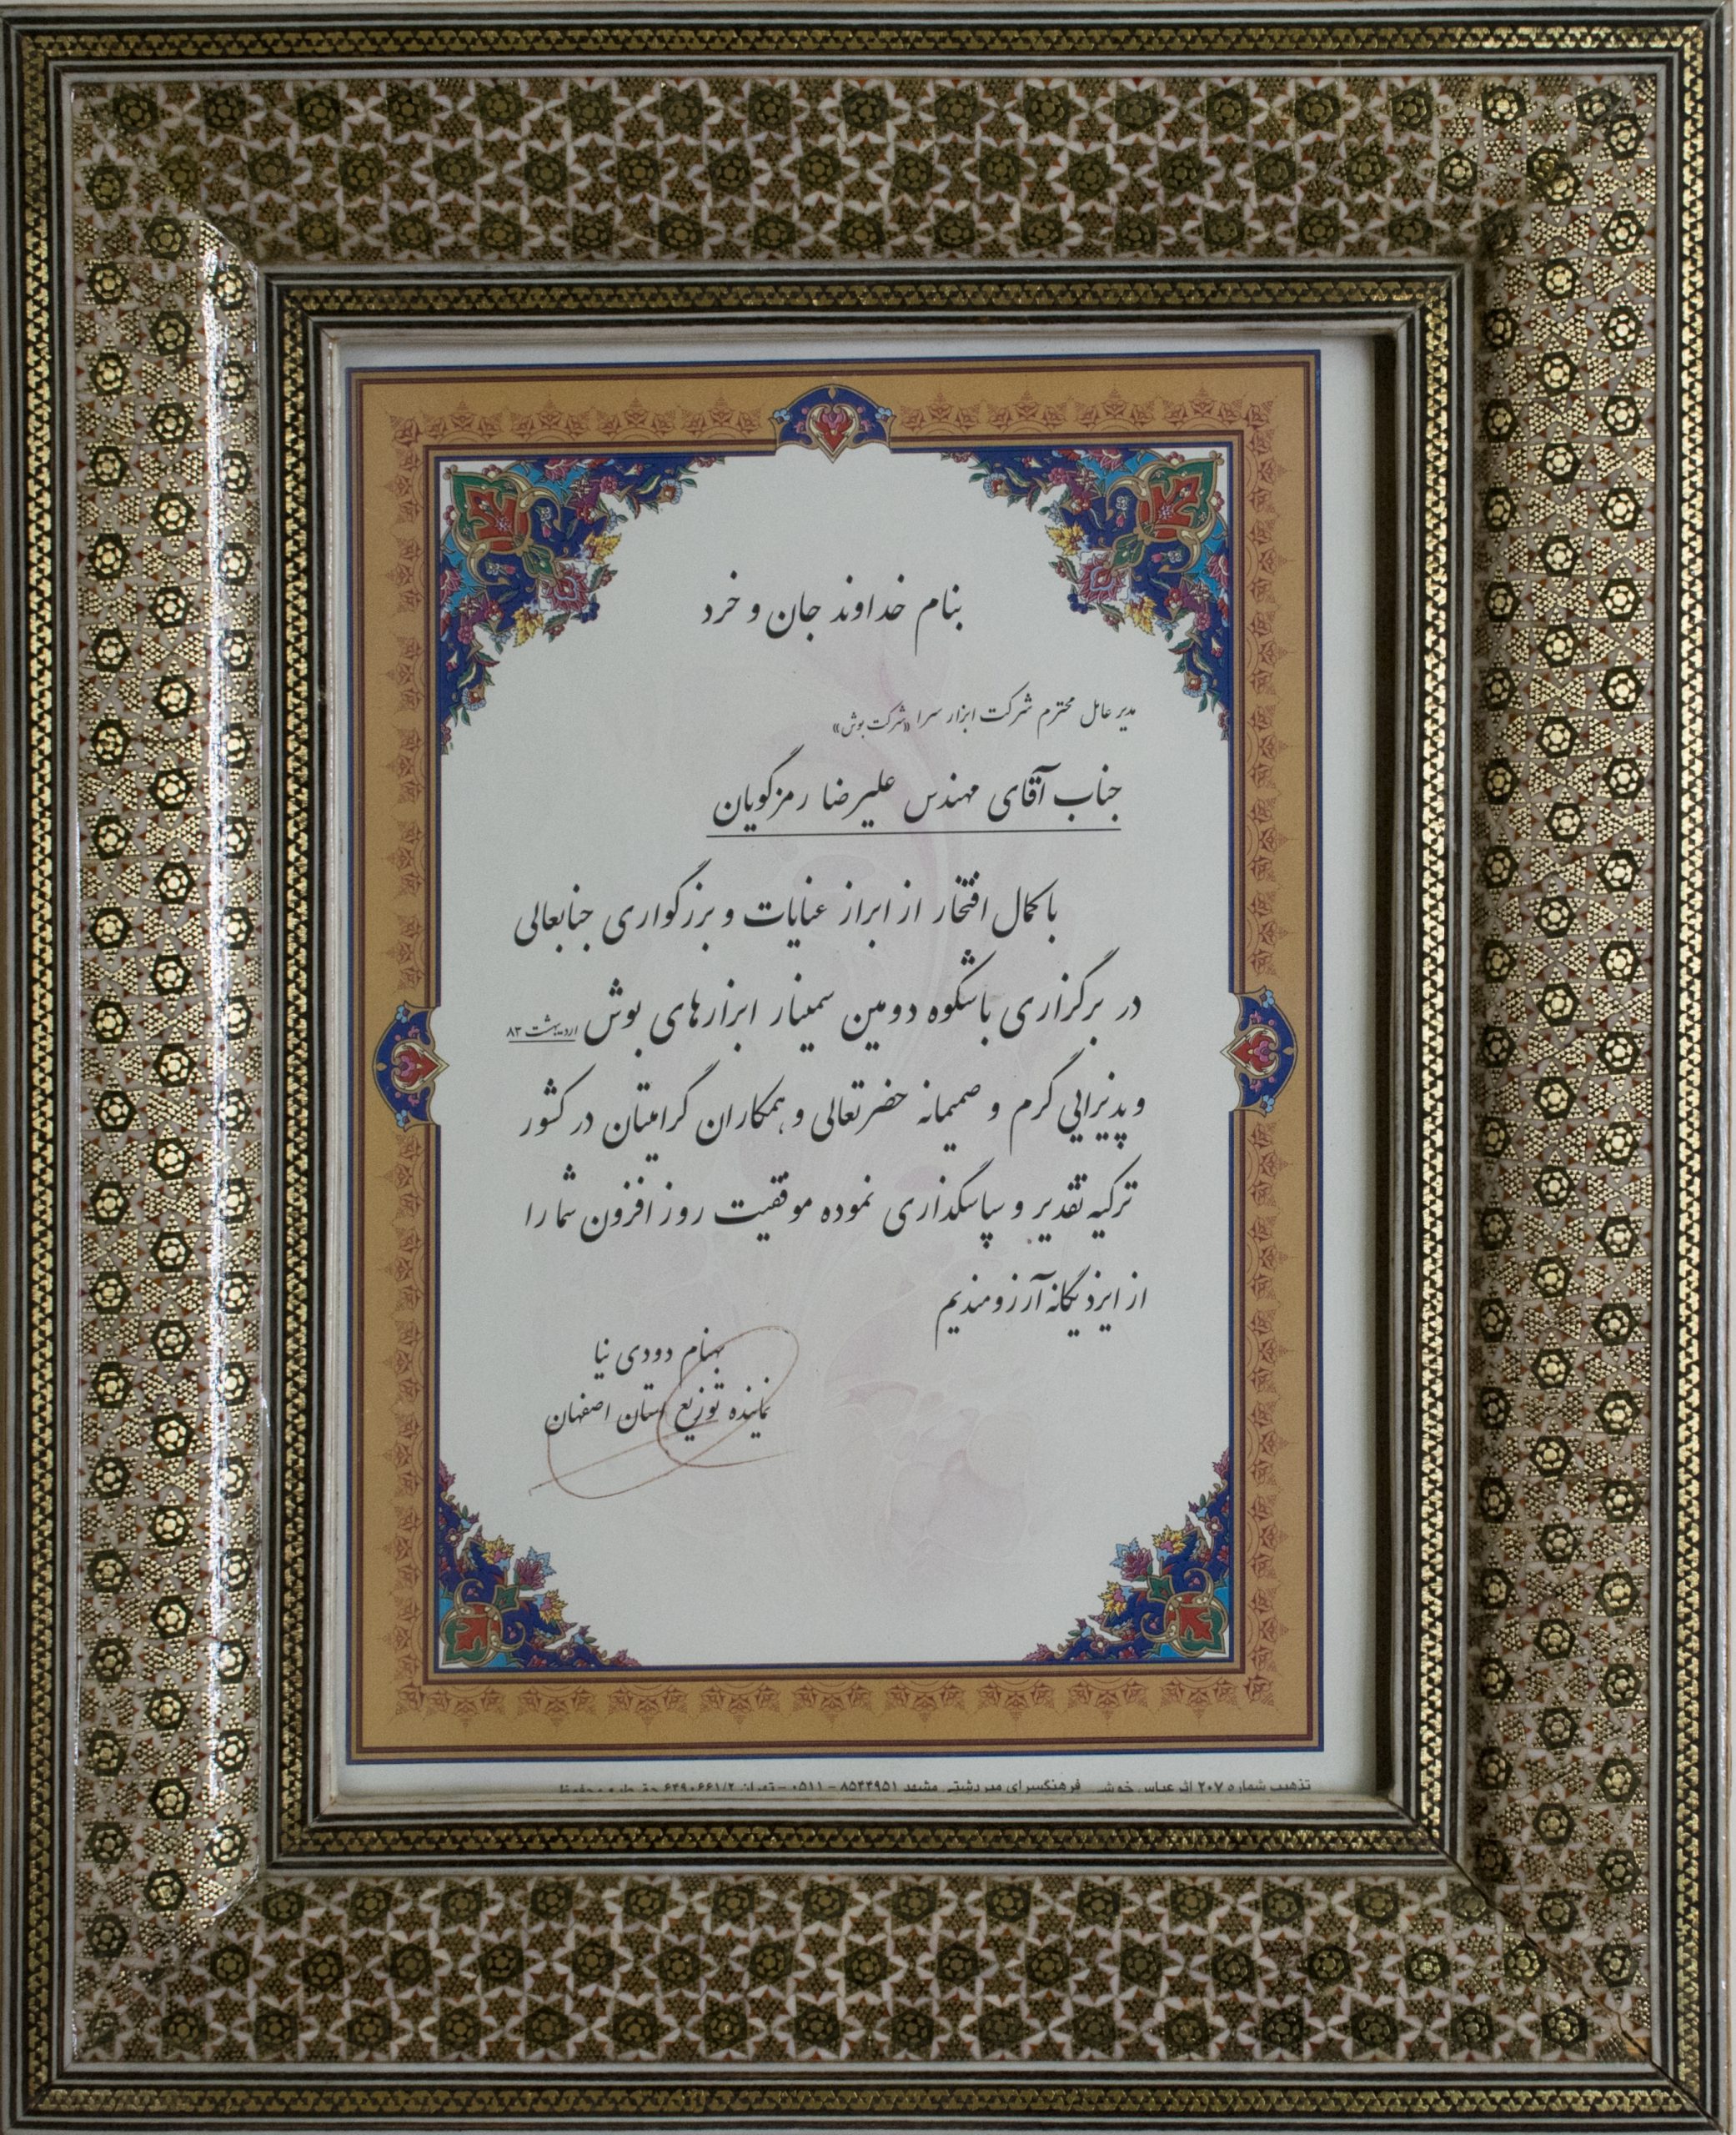 بنام خداوند جان و خرد
مدیر عامل محترم شرکت ابزار سرا «شرکت بوش»
جناب آقای مهندس علیرضا رمزگویان
با کمال افتخار از ابراز عنایات و بزرگواری جنابعالی
در برگزاری باشکوه دومین سمینار ابزارهای بوش اردیبهشت ۸۳
و پذیرایی گرم و صمیمانه حضرتعالی و همکاران گرامیتان در کشور
ترکیه تقدیر و سپاسگذاری نموده موفقیت روز افزون شما را
از ایزد یگانه آرزومندیم
بهنام دودی نیا
نماینده توزیع استان اصفهان
تذهیب شماره ۲۰۷ اثر عباس خوشی فرهنگسرای میردشتی مشهد ۸۵۴۴۹۵۱ - ۰۵۱۱ - تهران ۶۴۹۰۶۶۱/۲